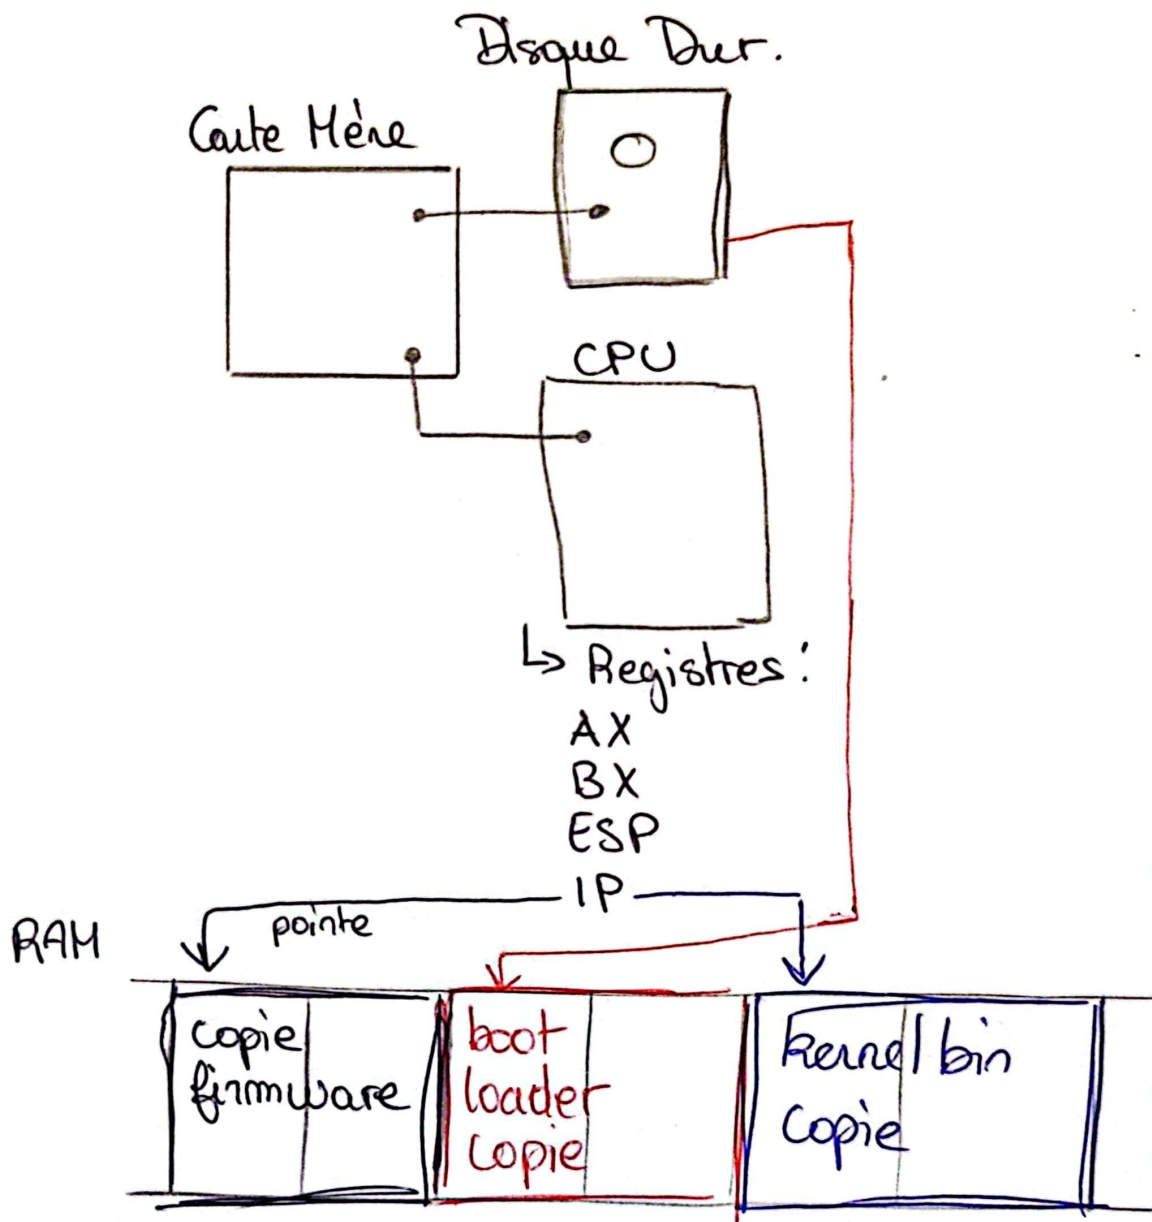 Disque Dur.
Carte Mère
CPU
↳ Registres :
AX
BX
ESP
IP
pointe
RAM
copie
firmware
boot
loader
copie
kernel bin
copie